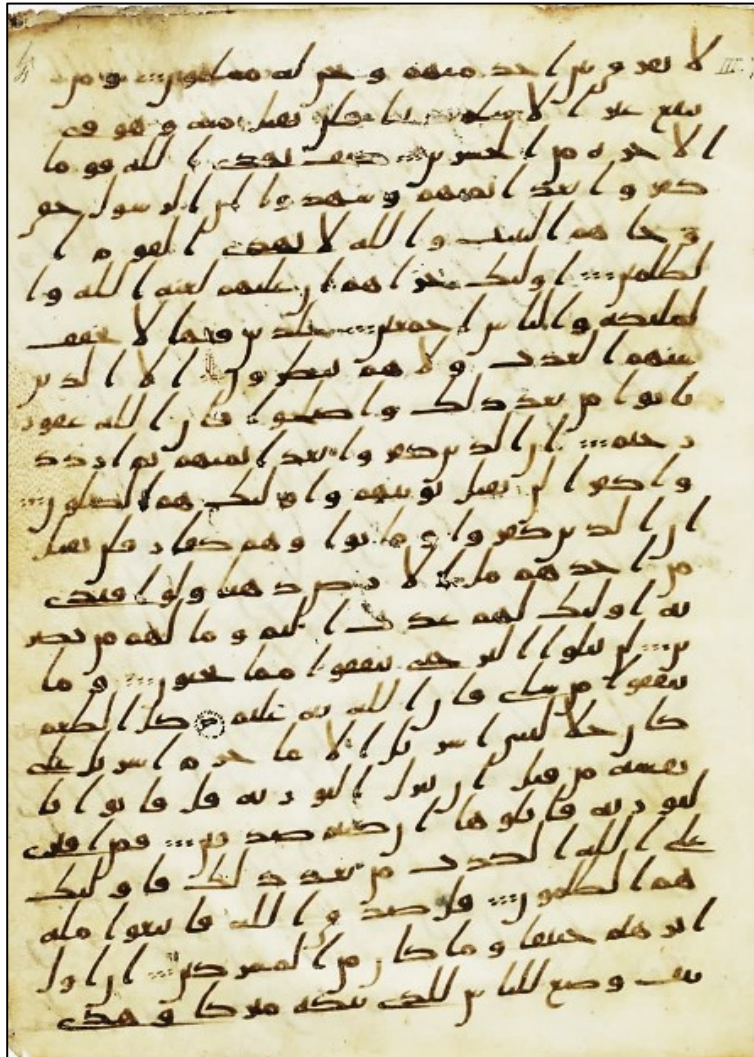 لا نفرق بين احد منهم و نحن له مسلمون و من
يبتغ غير الاسلم دينا فلن يقبل منه و هو في
الاخرة من الخسرين كيف يهدي الله قوما
كفروا بعد ايمنهم و شهدوا ان الرسول حق
و جاهم البينت و الله لا يهدي القوم ا
لظلمين اوليك جزاهم ان عليهم لعنة الله و ا
لمليكة و الناس اجمعين خلدين فيها لا يخفف
عنهم العذب و لا هم ينظرون الا الذين
تابوا من بعد ذلك و اصلحوا فان الله غفور
رحيم ان الذين كفروا بعد ايمنهم ثم ازدد
وا كفرا لن تقبل توبتهم و اوليك هم الضلون
ان الذين كفروا و ماتوا و هم كفار فلن يقبل
من احدهم مل الارض ذهبا ولو افتدى
به اوليك لهم عذب اليم و ما لهم من نصر
ين لن تنلوا البر حتى تنفقوا مما تحبون و ما
تنفقوا من شاي فان الله به عليم كل الطعم
كان حلا لبني اسريل الا ما حرم اسريل على
نفسه من قبل ان تنزل التورية قل فاتوا با
لتورية فاتلوها ان كنتم صدقين فمن افترى
على الله الكذب من بعد ذلك فاوليك
هم الظلمون قل صدق الله فاتبعوا ملة
ابرهيم حنيفا و ما كان من المشركين ان اول
بيت وضع للناس للذي ببكة مبركا و هدى